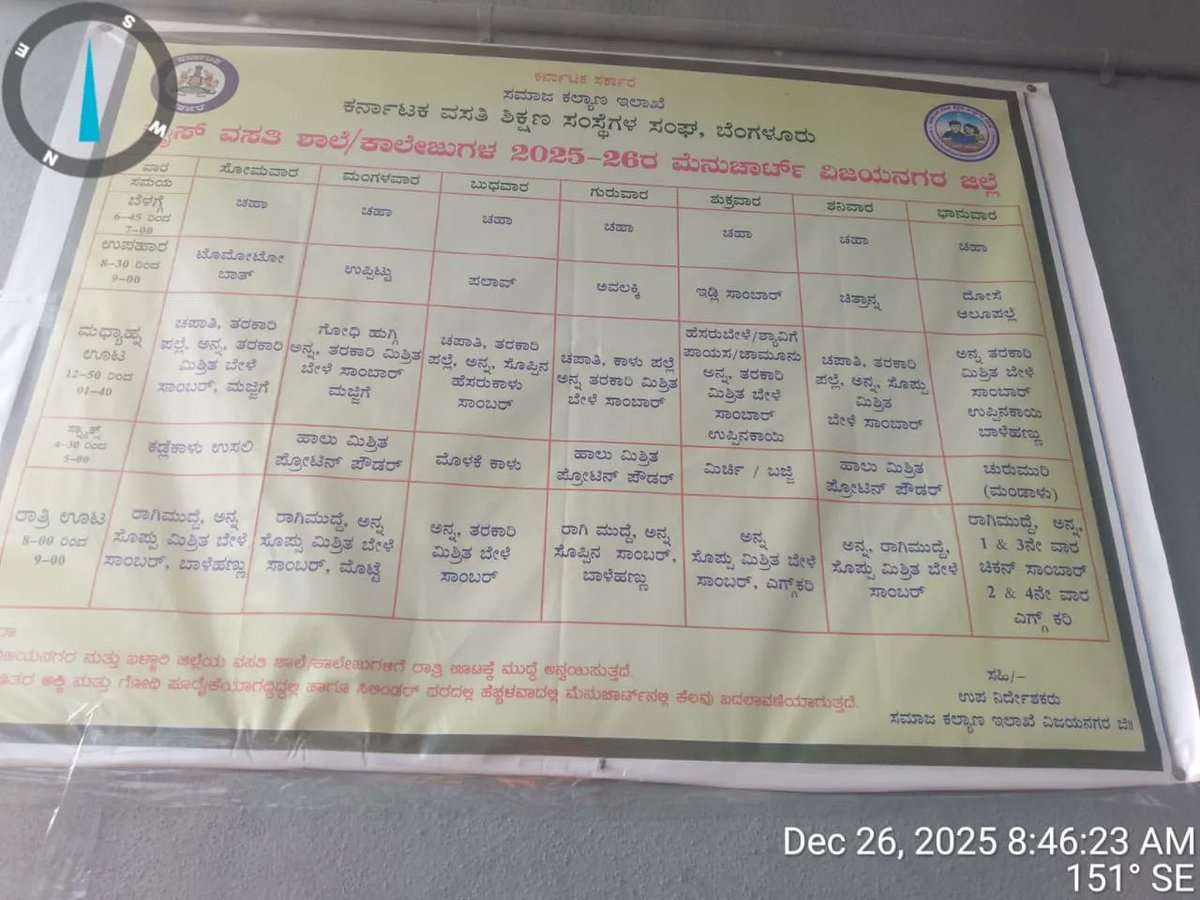 ಕರ್ನಾಟಕ ಸರ್ಕಾರ
ಸಮಾಜ ಕಲ್ಯಾಣ ಇಲಾಖೆ
ಕರ್ನಾಟಕ ವಸತಿ ಶಿಕ್ಷಣ ಸಂಸ್ಥೆಗಳ ಸಂಘ, ಬೆಂಗಳೂರು
ವಸತಿ ಶಾಲೆ/ಕಾಲೇಜುಗಳ 2025-26ರ ಮೆನುಚಾರ್ಟ್ ವಿಜಯನಗರ ಜಿಲ್ಲೆ
ವಾರ
ಸಮಯ
ಸೋಮವಾರ
ಮಂಗಳವಾರ
ಬುಧವಾರ
ಗುರುವಾರ
ಶುಕ್ರವಾರ
ಶನಿವಾರ
ಭಾನುವಾರ
ಬೆಳಗ್ಗೆ
6-45 ರಿಂದ
7-00
ಚಹಾ
ಚಹಾ
ಚಹಾ
ಚಹಾ
ಚಹಾ
ಚಹಾ
ಚಹಾ
ಉಪಹಾರ
8-30 ರಿಂದ
9-00
ಟೊಮೋಟೋ
ಬಾತ್
ಉಪ್ಪಿಟ್ಟು
ಪಲಾವ್
ಅವಲಕ್ಕಿ
ಇಡ್ಲಿ ಸಾಂಬಾರ್
ಚಿತ್ರಾನ್ನ
ದೋಸೆ
ಆಲೂಪಲ್ಲೆ
ಮಧ್ಯಾಹ್ನ
ಊಟ
12-50 ರಿಂದ
01-40
ಚಪಾತಿ, ತರಕಾರಿ
ಪಲ್ಲೆ, ಅನ್ನ, ತರಕಾರಿ
ಮಿಶ್ರಿತ ಬೇಳೆ
ಸಾಂಬರ್, ಮಜ್ಜಿಗೆ
ಗೋಧಿ ಹುಗ್ಗಿ
ಅನ್ನ, ತರಕಾರಿ ಮಿಶ್ರಿತ
ಬೇಳೆ ಸಾಂಬಾರ್
ಮಜ್ಜಿಗೆ
ಚಪಾತಿ, ತರಕಾರಿ
ಪಲ್ಲೆ, ಅನ್ನ, ಸೊಪ್ಪಿನ
ಹೆಸರುಕಾಳು
ಸಾಂಬರ್
ಚಪಾತಿ, ಕಾಳು ಪಲ್ಲೆ
ಅನ್ನ ತರಕಾರಿ ಮಿಶ್ರಿತ
ಬೇಳೆ ಸಾಂಬಾರ್
ಹೆಸರುಬೇಳೆ/ಶ್ಯಾವಿಗೆ
ಪಾಯಸ/ಜಾಮೂನು
ಅನ್ನ, ತರಕಾರಿ
ಮಿಶ್ರಿತ ಬೇಳೆ
ಸಾಂಬಾರ್
ಉಪ್ಪಿನಕಾಯಿ
ಚಪಾತಿ, ತರಕಾರಿ
ಪಲ್ಲೆ, ಅನ್ನ, ಸೊಪ್ಪು
ಮಿಶ್ರಿತ
ಬೇಳೆ ಸಾಂಬಾರ್
ಅನ್ನ ತರಕಾರಿ
ಮಿಶ್ರಿತ ಬೇಳೆ
ಸಾಂಬಾರ್
ಉಪ್ಪಿನಕಾಯಿ
ಬಾಳೆಹಣ್ಣು
ಸ್ನ್ಯಾಕ್ಸ್
4-30 ರಿಂದ
5-00
ಕಡ್ಲೆಕಾಳು ಉಸಲಿ
ಹಾಲು ಮಿಶ್ರಿತ
ಪ್ರೋಟಿನ್ ಪೌಡರ್
ಮೊಳಕೆ ಕಾಳು
ಹಾಲು ಮಿಶ್ರಿತ
ಪ್ರೋಟಿನ್ ಪೌಡರ್
ಮಿರ್ಚಿ / ಬಜ್ಜಿ
ಹಾಲು ಮಿಶ್ರಿತ
ಪ್ರೋಟಿನ್ ಪೌಡರ್
ಚುರುಮುರಿ
(ಮಂಡಾಳು)
ರಾತ್ರಿ ಊಟ
8-00 ರಿಂದ
9-00
ರಾಗಿಮುದ್ದೆ, ಅನ್ನ
ಸೊಪ್ಪು ಮಿಶ್ರಿತ ಬೇಳೆ
ಸಾಂಬರ್, ಬಾಳೆಹಣ್ಣು
ರಾಗಿಮುದ್ದೆ, ಅನ್ನ
ಸೊಪ್ಪು ಮಿಶ್ರಿತ ಬೇಳೆ
ಸಾಂಬರ್, ಮೊಟ್ಟೆ
ಅನ್ನ, ತರಕಾರಿ
ಮಿಶ್ರಿತ ಬೇಳೆ
ಸಾಂಬರ್
ರಾಗಿ ಮುದ್ದೆ, ಅನ್ನ
ಸೊಪ್ಪಿನ ಸಾಂಬರ್,
ಬಾಳೆಹಣ್ಣು
ಅನ್ನ
ಸೊಪ್ಪು ಮಿಶ್ರಿತ ಬೇಳೆ
ಸಾಂಬರ್, ಎಗ್ಗ್‌ಕರಿ
ಅನ್ನ, ರಾಗಿಮುದ್ದೆ,
ಸೊಪ್ಪು ಮಿಶ್ರಿತ ಬೇಳೆ
ಸಾಂಬರ್
ರಾಗಿಮುದ್ದೆ, ಅನ್ನ,
1 & 3ನೇ ವಾರ
ಚಿಕನ್ ಸಾಂಬಾರ್
2 & 4ನೇ ವಾರ
ಎಗ್ಗ್ ಕರಿ
ಮತ್ತು ಬಳ್ಳಾರಿ ಜಿಲ್ಲೆಯ ವಸತಿ ಶಾಲೆ/ಕಾಲೇಜುಗಳಿಗೆ ರಾತ್ರಿ ಊಟಕ್ಕೆ ಮುದ್ದೆ ಅನ್ವಯಿಸುತ್ತದೆ.
ಅಕ್ಕಿ ಮತ್ತು ಗೋಧಿ ಹಾಗೂ ಸಿಲಿಂಡರ್ ದರದಲ್ಲಿ ಹೆಚ್ಚಳವಾದಲ್ಲಿ ಮೆನುಚಾರ್ಟ್‌ನಲ್ಲಿ ಕೆಲವು ಬದಲಾವಣೆಯಾಗುತ್ತದೆ.
ಸಹಿ/-
ಉಪ ನಿರ್ದೇಶಕರು
ಸಮಾಜ ಕಲ್ಯಾಣ ಇಲಾಖೆ ವಿಜಯನಗರ ಜಿ॥
S
E
W
N
Dec 26, 2025 8:46:23 AM
151° SE